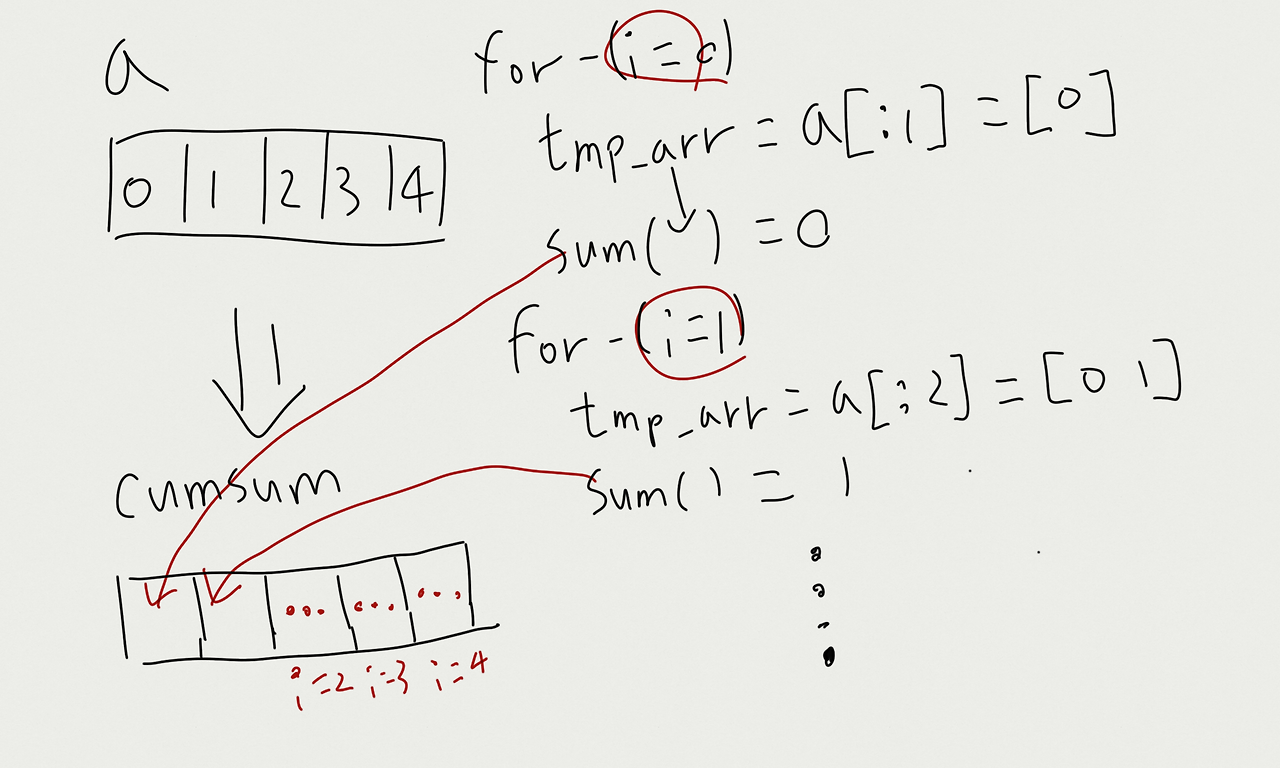 a
0 1 2 3 4
for - (i = 0)
tmp_arr = a[:1] = [0]
sum( ) = 0
for - (i=1)
tmp_arr = a[:2] = [0 1]
sum( ) = 1
cumsum
... ... ...
i=2 i=3 i=4